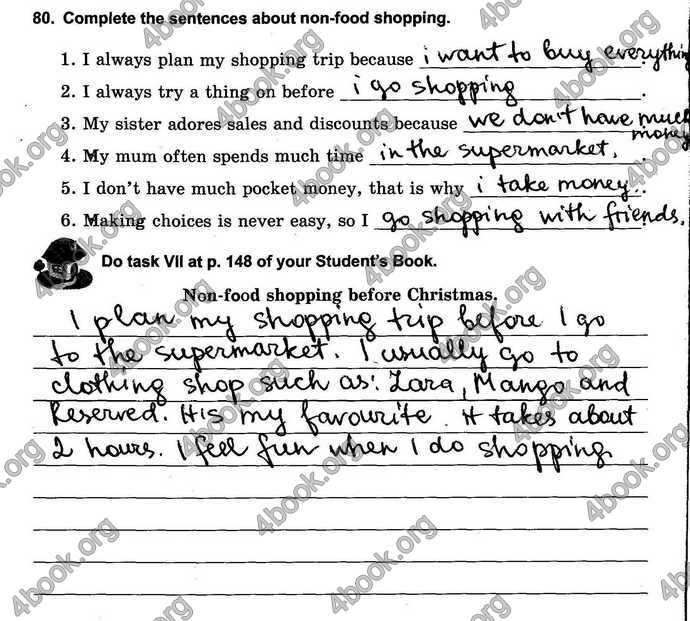 80. Complete the sentences about non-food shopping.
1. I always plan my shopping trip because i want to buy everything
2. I always try a thing on before i go shopping.
3. My sister adores sales and discounts because we don't have much
money
4. My mum often spends much time in the supermarket.
5. I don't have much pocket money, that is why i take money..
6. Making choices is never easy, so I go shopping with friends.
Do task VII at p. 148 of your Student's Book.
Non-food shopping before Christmas.
I plan my shopping trip before I go
to the supermarket. I usually go to
clothing shop such as: Zara, Mango and
Reserved. It is my favourite. It takes about
2 hours. I feel fun when I do shopping.
4book.org